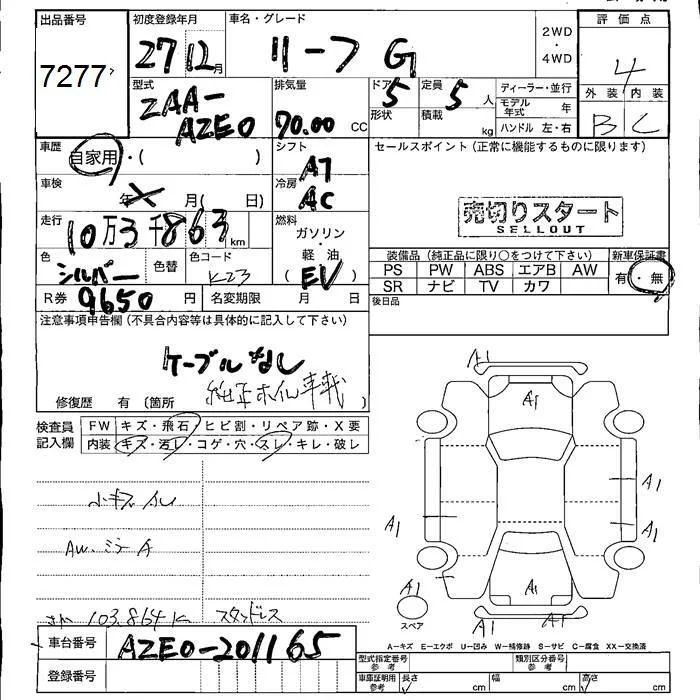 出品番号 初度登録年月 車名・グレード 評価点
7277 27 12月 リーフ G 2WD・4WD 4
型式 排気量 ドア 定員 ディーラー・並行 外装 内装
ZAA-AZE0 70.00 CC 5 5人 モデル年式 年 B C
形状 積載 kg ハンドル 左・右
車歴 自家用・( ) シフト AT セールスポイント(正常に機能するものに限ります)
車検 年 X 月( 日) 冷房 AC
売切りスタート
SELLOUT
走行 10万3千863km 燃料 ガソリン・軽油
EV
色 シルバー 色替 色コード K23
装備品(純正品に限り○をつけて下さい) 新車保証書
PS PW ABS エアB AW 有・無
SR ナビ TV カワ
R券 9650円 名変期限 月 日 後日品
注意事項申告欄(不具合内容等は具体的に記入して下さい)
ケーブルなし
純正ホイル車載
修復歴 有 (箇所 )
検査員記入欄 FW キズ・飛石・ヒビ割・リペア跡・X要
内装 キズ・汚レ・コゲ・穴・スレ・キレ・破レ
小キズ
AW・ミラーA
103.864K スタンドレス
A1
A1
A1
A1
A1
A1
A1
A1
A1
A1
スペア
A-キズ E-エクボ U-凹み W-補修跡 S-サビ C-腐食 XX-交換済
車台番号 AZE0-201165
登録番号
型式指定番号参考 類別区分番号参考
車庫証明用参考 長さ cm 幅 cm 高さ cm